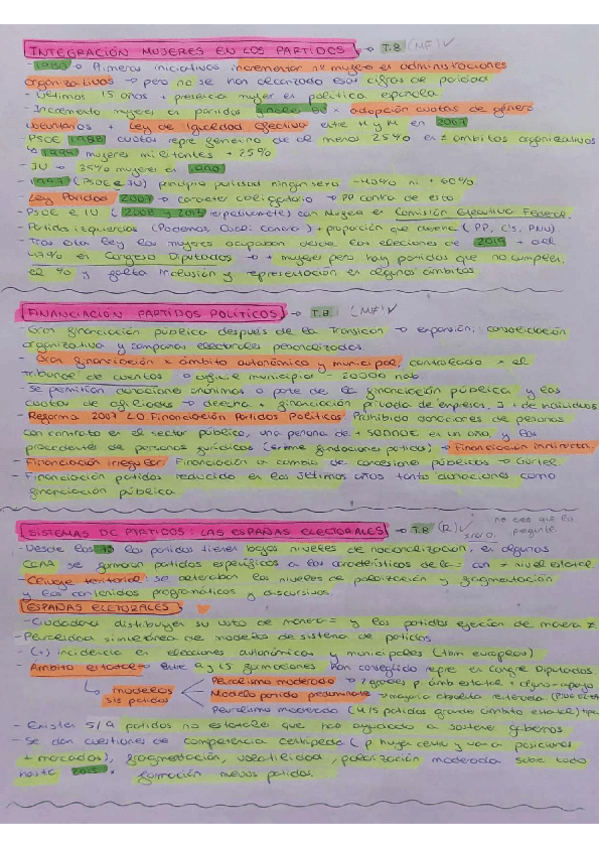 INTEGRACIÓN MUJERES EN LOS PARTIDOS → T.8 (MF) ✓
- 1980 Primeras iniciativas incrementar nº mujeres en administraciones
organizativas → pero no se han alcanzado esas cifras de paridad
- Últimos 15 años + presencia mujer en política española
- Incremento mujeres en partidos = adopción cuotas de género
voluntarias + Ley de Igualdad efectiva entre H y M en 2007
PSOE 1988 cuotas repre femenino de al menos 25% en ≠ ámbitos organizativos
↳ 1994 mujeres militantes + 25%
- IU → 35% mujeres en
- 1997 (PSOE e IU) principio paridad ningún sexo -40% ni + 60%
Ley Paridad 2007 → carácter obligatorio → PP contra de esto
- PSOE e IU (2008 y 2013 respectivamente) con Mujeres en Comisión Ejecutiva Federal.
- Partidos izquierdas (Podemos, ) + proporción que derecha (PP, C's, PNV)
- Tras esta ley las mujeres ocupaban desde las elecciones de 2019 + del
47% en Congreso Diputados → + mujeres pero hay partidos que no cumplen
el % y falta inclusión y representación en algunos ámbitos.
FINANCIACIÓN PARTIDOS POLÍTICOS → T.8 (MF) ✓
- Gran financiación pública después de la Transición → expansión, consolidación
organizativa y campañas electorales personalizadas
- Gran financiación x ámbito autonómico y municipal, controlado x el
Tribunal de cuentos municipio - 20000 hab
- Se permitían donaciones anónimas a parte de la financiación pública y las
cuotas de afiliados → derecha + financiación privada de empresas, I + de individuos
- Reforma 2007 L.O. Financiación Partidos Políticos. Prohibida donaciones de personas
con contrato en el sector público, una persona de + 50000€ en un año, y las
procedente de personas jurídicas → Financiación indirecta
- Financiación irregular. Financiación a cambio de concesiones públicas → Gürtel.
- Financiación partidos reducido en los últimos años tanto donaciones como
financiación pública
SISTEMAS DE PARTIDOS: LAS ESPAÑAS ELECTORALES → T.8 (R) ✓ → no creo que lo
pregunte.
- Desde los los partidos tienen bajos niveles de nacionalización, en algunas
CCAA se forman partidos específicos a las características de la = con ≠ nivel estatal.
- Cleavage territorial: se alteraban los niveles de polarización y fragmentación
y los contenidos programáticos y discursivos.
ESPAÑAS ELECTORALES
- Ciudadano distribuyen su voto de manera = y los partidos ejercen de manera ≠.
- Pluralidad simultánea de modelos de sistema de partidos
- (+) incidencia en elecciones autonómicas y municipales (tam europeas)
- Ámbito estatal → entre 9 y 15 formaciones han conseguido repre en Congre Diputados
↳ modelos sis partidos
Pluralismo moderado → 2 grandes p. ámb estatal + apoyo
Modelo partido predominante → mayoría absoluta
Pluralismo moderado (4/5 partidos grande ámbito estatal)
- Existen 5/9 partidos no estatales que han ayudado a sostener gobiernos
- Se dan cuestiones de competencia centrípeta (p huye centro y va a posiciones
+ marcadas), fragmentación, volatilidad, polarización moderada sobre todo
hasta 2015. formación nuevos partidos.